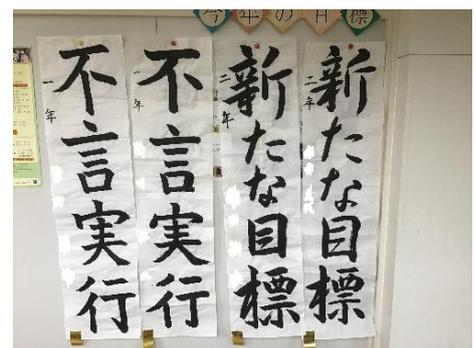 今年の目標
新たな目標
二年
新たな目標
二年
不言実行
一年
不言実行
一年